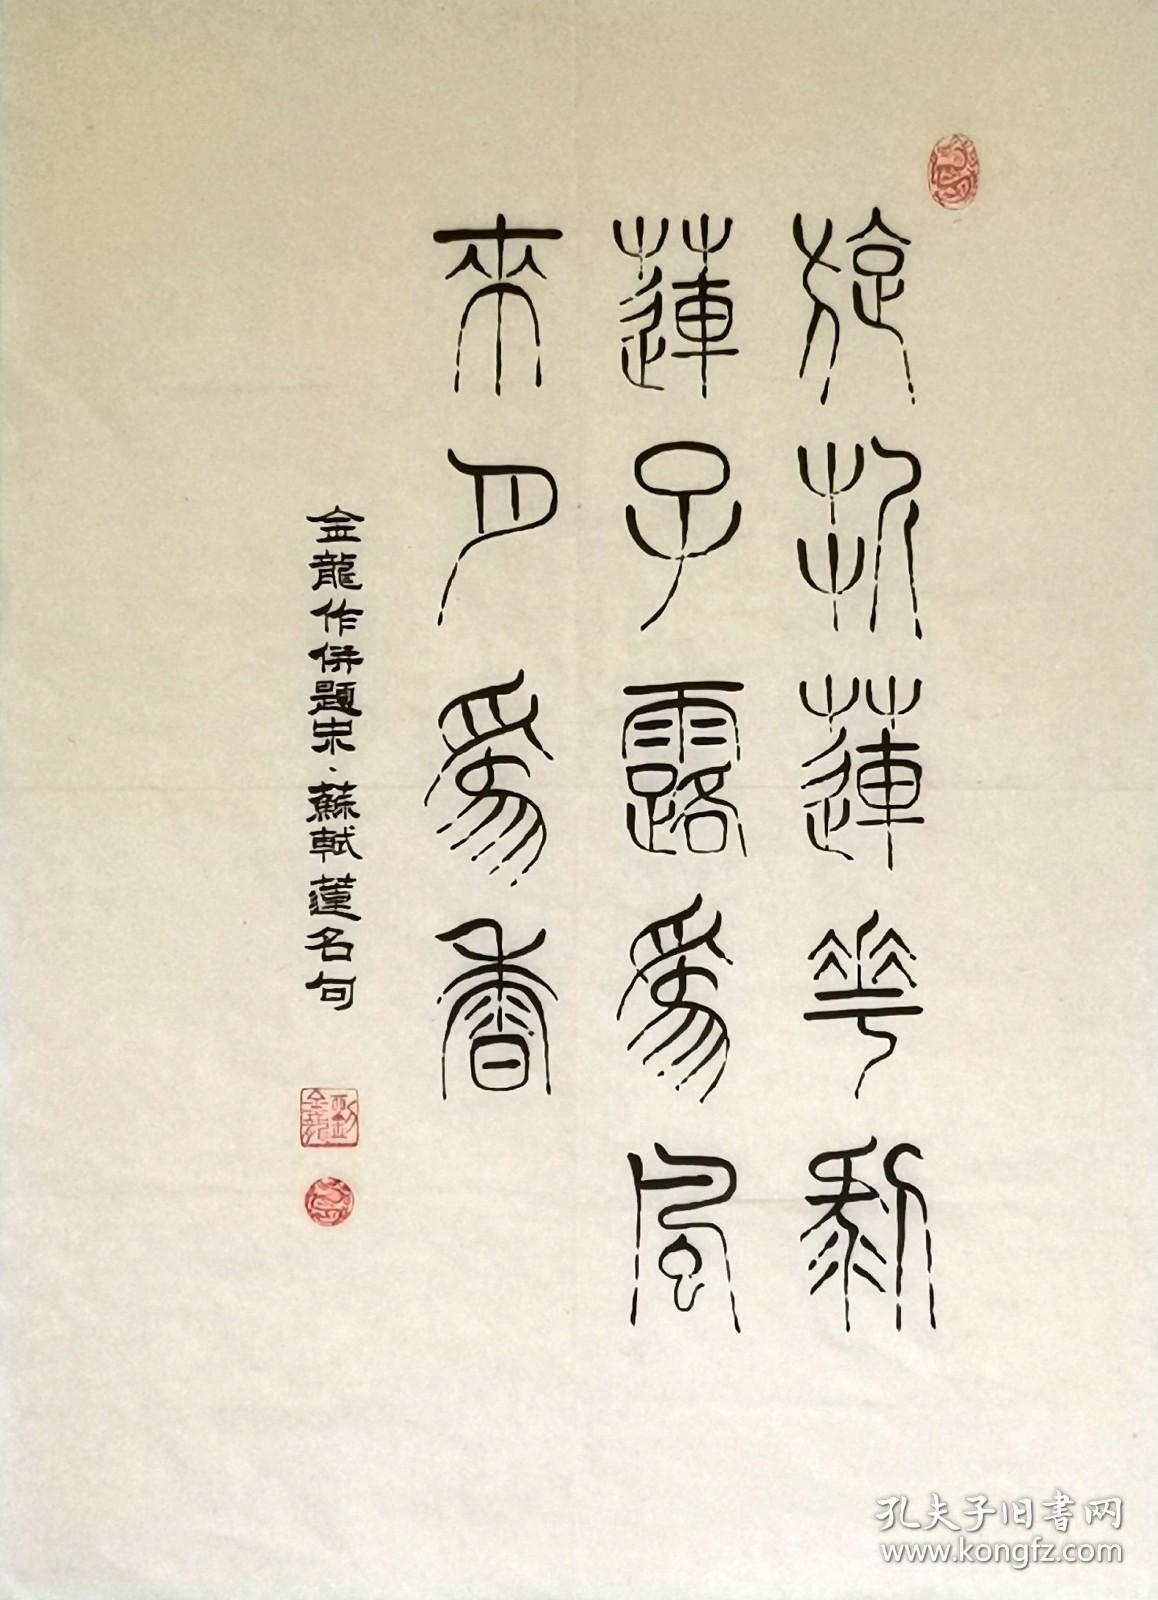 旋折蓮華剝
蓮子露爲風
来月爲香
金龍作併題宋·蘇軾蓮名句
孔夫子旧书网
www.kongfz.com